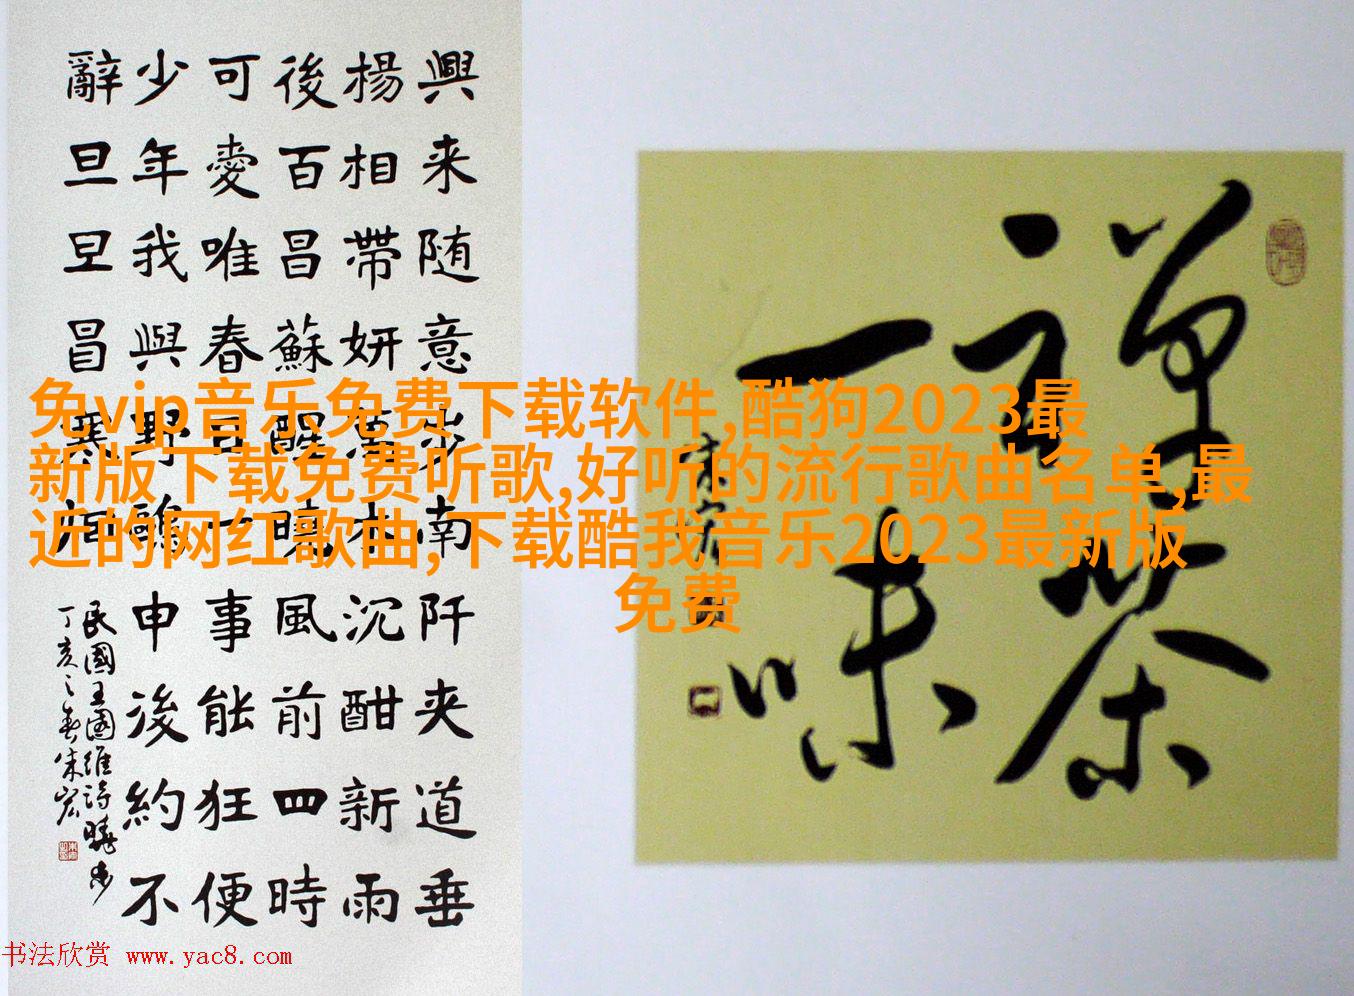 興来随意步南阡夹道垂
楊相帶妍萬木沉酣新雨
後百昌蘇醒曉風前四時
可愛唯春日一事能狂便
少年我與野鷗申後約不
辭旦旦冒寒烟
民國王國維詩曉步
丁亥之春朱宏
禅茶
一味
免vip音乐免费下载软件,酷狗2023最
新版下载免费听歌,好听的流行歌曲名单,最
近的网红歌曲,下载酷我音乐2023最新版
免费
书法欣赏 www.yac8.com